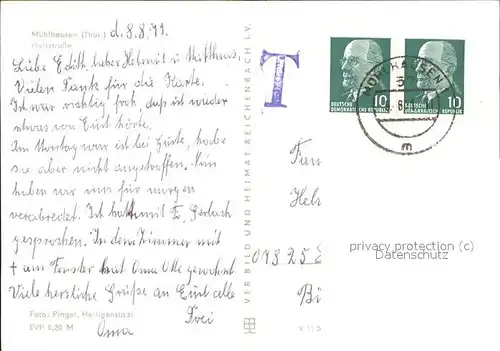 Mühlhausen (Thür.) d. 8. 8. 71.
Holzstraße
Liebe Edith, lieber Helmut u. Matthias,
Vielen Dank für die Karte.
Ich war richtig froh, daß ich wieder
etwas von Euch hörte.
Im Montag war ich bei Güste, habe
sie aber nicht angetroffen. Nun
haben wir uns für morgen
verabredet. Ich hatte mit Fr. Gerlach
gesprochen. In dem Zimmer mit
+ am Fenster hat Oma Otte gewohnt
Viele herzliche Grüße an Euch alle
Drei
Foto: Pingel, Heiligenstadt
EVP 0,20 M
Oma
VEB BILD UND HEIMAT REICHENBACH I. V.
T
DEUTSCHE
DEMOKRATISCHE REPUBLIK
10
10
REPUBLIK
Fam
Hel
privacy protection (c)
Datenschutz
07825
V 11 5